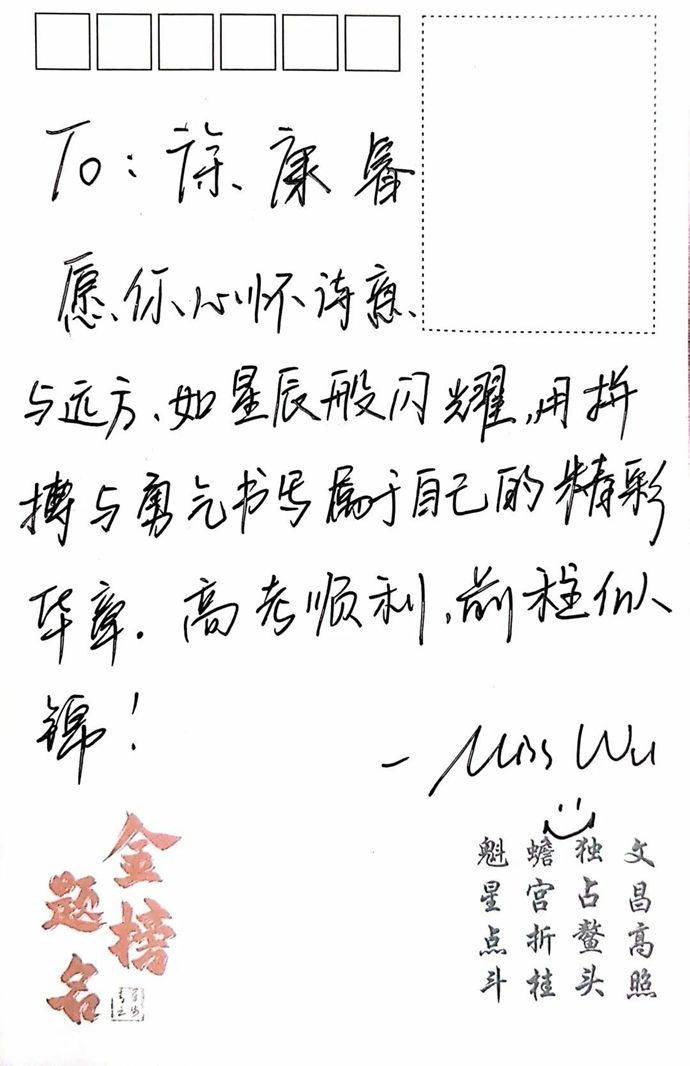 To：徐康睿
愿你心怀诗意
与远方，如星辰般闪耀，用拼
搏与勇气书写属于自己的精彩
华章。高考顺利，前程似
锦！
- Miss Wu
金榜
题名
文昌高照
独占鳌头
蟾宫折桂
魁星点斗